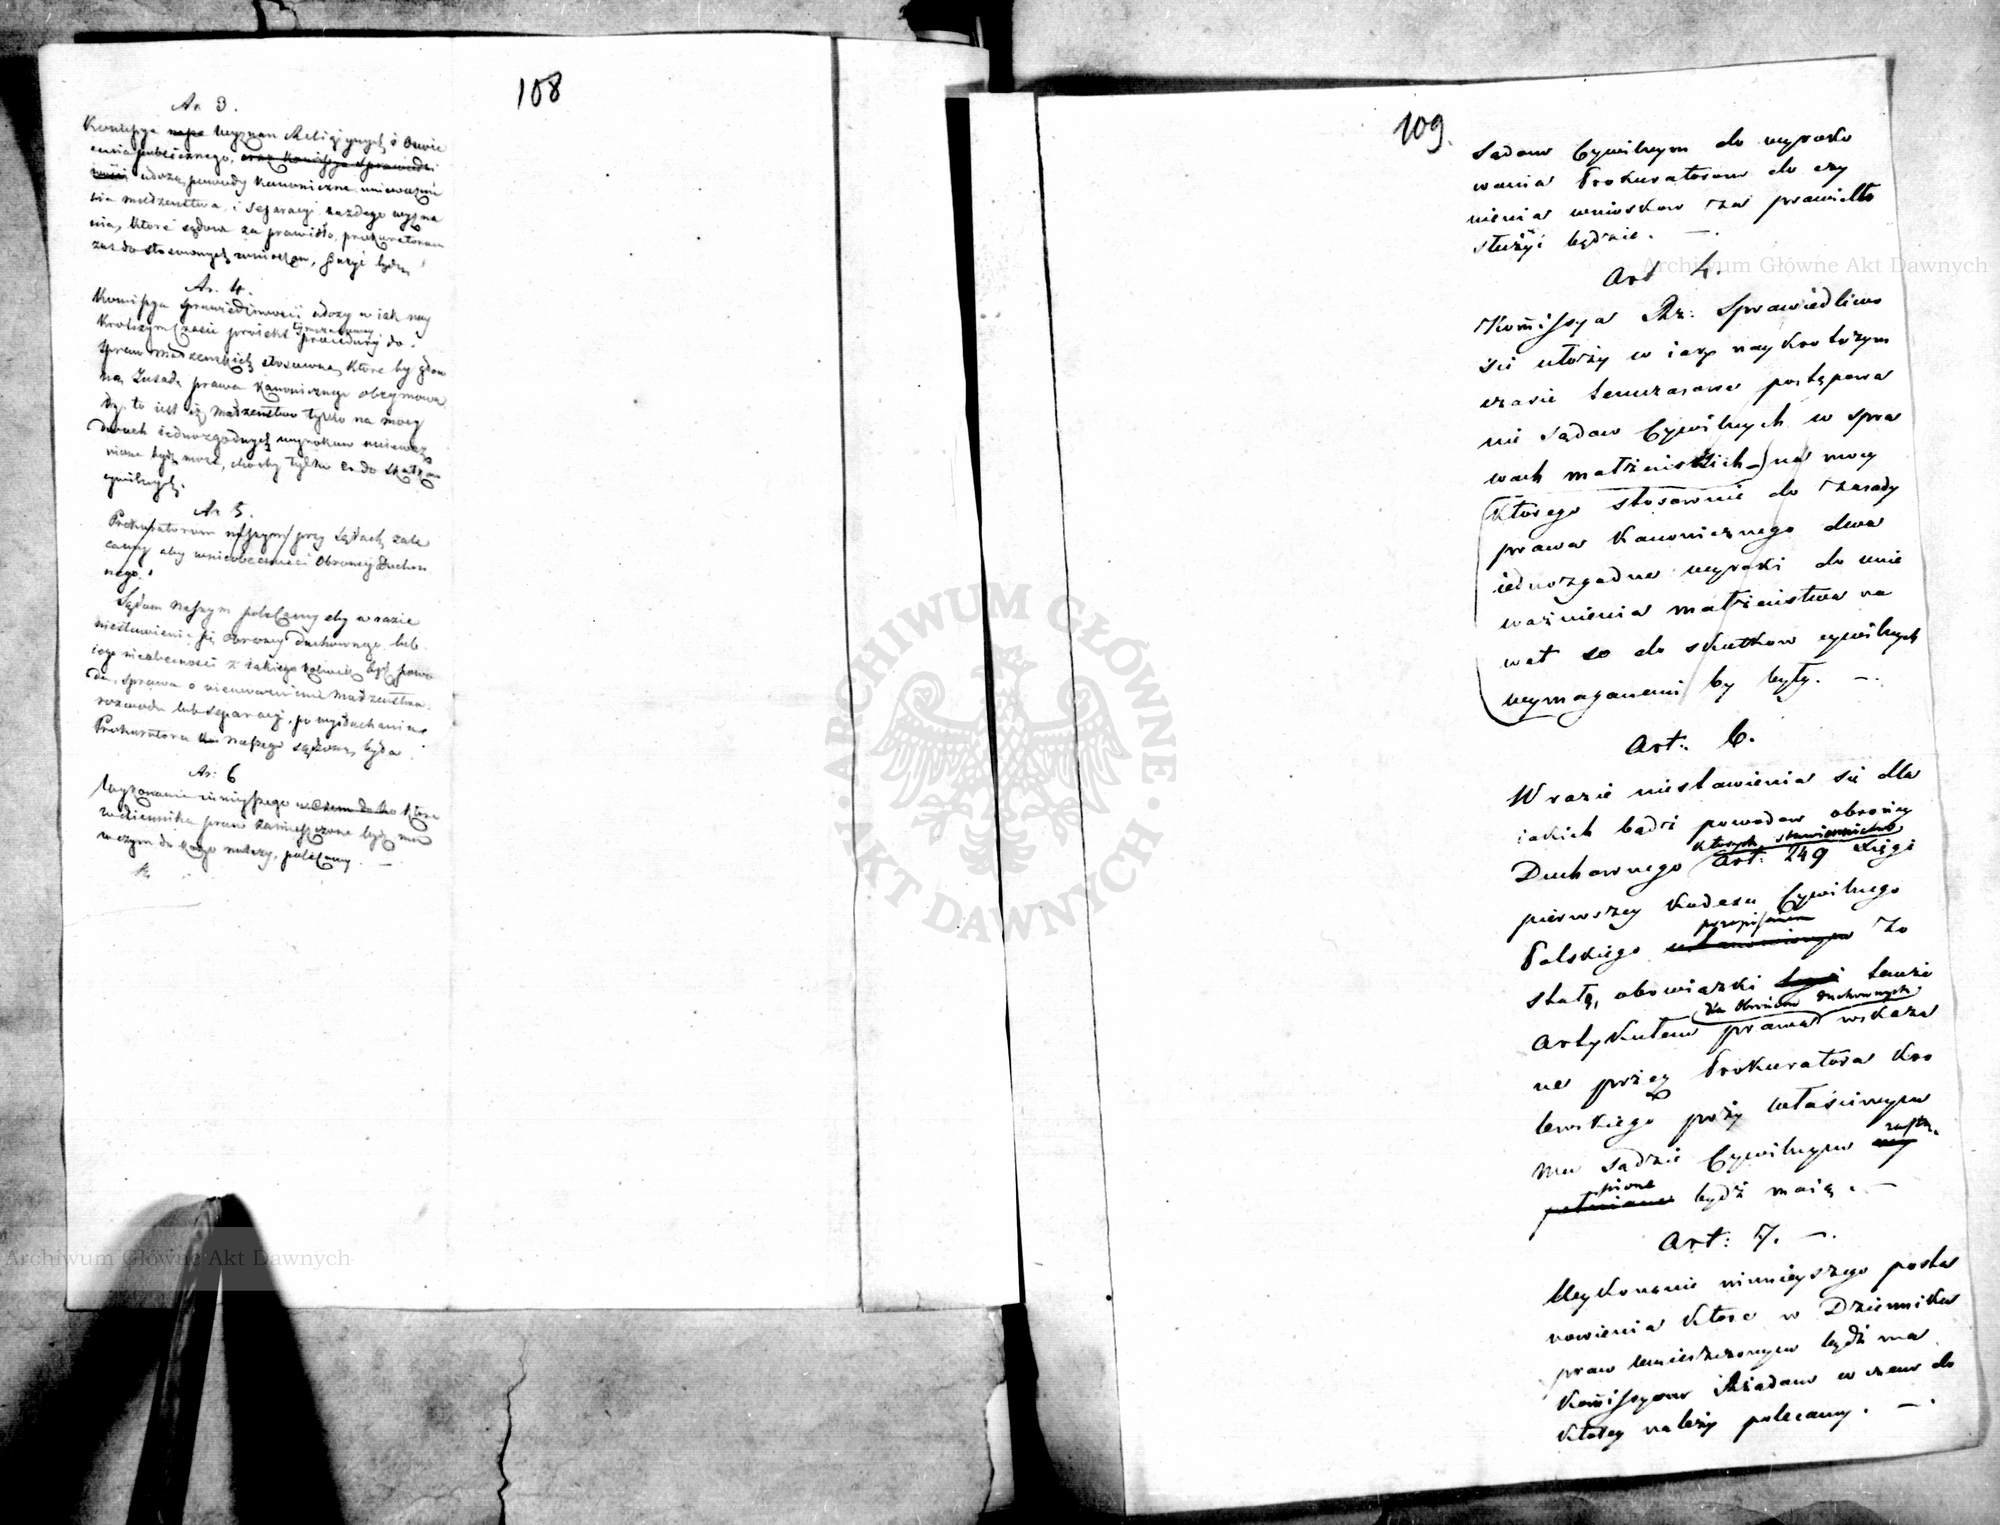 108
Ar 3.
Komissya Wyznan Religiynych i Oswie
cenia publicznego, oraz Komissya Sprawiedli
wości ułożą powody kanoniczne uniewaznie
nia małzenstwa i separacyi kazdego wyzna
nia, które sądom za prawidło, prokuratorom
zas do stosownych wnioskow, służyć będą
Ar. 4.
Komissya Sprawiedliwosci ułozy w iak nay
krotszym czasie proiekt tymczasowey procedury do
spraw małzenskich stosowną, ktore by głow
ną zasadę prawa kanonicznego obeymowa
ły, to iest iż małzenstwo tylko na mocy
dwoch iednozgodnych wyrokow uniewaz
nione bydz moze, choćby tylko co do skutkow
cywilnych.
Ar 5.
Prokuratorom naszym przy Sądach zale
camy aby w nieobecnosci Obroncy Duchow
nego.
Sądom naszym polecamy aby w razie
niestawienia się obroncy duchownego lub
iego nieobecnosci z iakiego kolwiek bądź powo
du, sprawa o uniewaznienie małzenstwa
rozwodu lub separacyi, po wysłuchaniu
Prokuratora naszego sądzoną była
Ar: 6
Wykonanie ninieyszego które
w dzienniku praw zamieszczone bydz ma
w czym do kogo nalezy, polecamy. —
109.
Sądom Cywilnym do wyroko
wania Prokuratorom do czy
nienia wniosków za prawidło
służyć będzie. —
Art 4.
Kom̃issya Rz: Sprawiedliwo
ści ułoży w iak naykrótszym
czasie tymczasowe postępowa
nie sądow Cywilnych w spra
wach małżeńskich na mocy
którego stosownie do zasady
prawa Kanonicznego dwa
iednozgodne wyroki do unie
ważnienia małżeństwa na
wet co do skutkow cywilnych
wymaganemi by były. —.
Art: 6.
W razie niestawienia się dla
iakich bądź powodow obrońcy
których stawiennictwo
Duchownego Art: 249 xięgi
pierwszey Kodexu Cywilnego
przepisanem
Polskiego ustanowionym zo
stało, obowiązki tymże
dla Obrońców duchownych
Artykułem prawa wskaza
ne przez Prokuratora Kro
lewskiego przy właściwym
mu sądzie Cywilnym zastą
pione
pełnione bydź maią. —
Art: 7. —.
Wykonanie ninieyszego posta
nowienia które w Dzienniku
praw umieszczonym bydź ma
Kom̃issyom Rządow w czem do
którey należy polecamy. —.
Archiwum Główne Akt Dawnych
Archiwum Główne Akt Dawnych
ARCHIWUM GŁÓWNE · AKT DAWNYCH ·